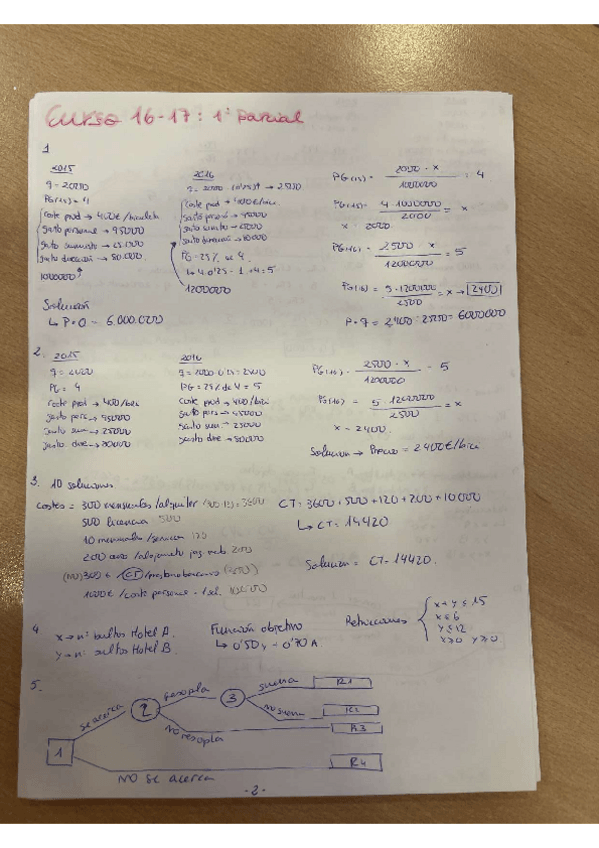 Curso 16-17: 1º Parcial
1
2015
q = 2000
PG(15) = 4
coste prod → 400€/bicicleta
gasto personal → 95000
gasto suministro →
gasto dirección → 80.000
1000000
Solución
↳ P·Q = 6.000.000
2016
coste prod → 400€/bici
gasto personal →
gasto sumistro →
gasto dirección → 80000
PG = 25% de 4
1200000
PG(15) = 2000 · x / 1000000 = 4
PG(15) = 4 · 1000000 / 2000 = x
x = 2000
PG(16) = 2500 · x / 1200000 = 5
PG(16) = 5 · 1200000 / 2500 = x → 2400
P · q = 2400 · 2500 = 6000000
2.
2015
q = 2000
PG = 4
coste prod → 400/bici
gasto pers → 95000
gasto sum → 25000
gasto dire → 80000
2016
PG = 25% de 4 = 5
coste prod → 400/bici
gasto pers →
gasto sum → 25000
gasto dire → 80000
PG(16) = 2500 · x / 1200000 = 5
PG(16) = 5 · 1200000 / 2500 = x
x = 2400.
Solución → Precio = 2400€/bici
3. 10 soluciones
costes = 300 mensuales/alquiler (300·12) = 3600
500 licencia 500
10 mensuales/servicio 120
200 euro/alojamiento pag. web 200
(NO) 300 €
1000€/coste personal · 10000
CT = 3600 + 500 + 120 + 200 + 10000
↳ CT = 14420
Solución = CT = 14420.
4
x → nº bultos Hotel A.
y → nº bultos Hotel B.
Función objetivo
↳ 0'50y - 0'70A
Restricciones
x + y ≤ 15
x ≤ 6
y ≤ 12
x ≥ 0 y ≥ 0
5.
1
se acerca
2
resopla
3
suena
R1
no suena
R2
no resopla
R3
NO se acerca
R4
-2-